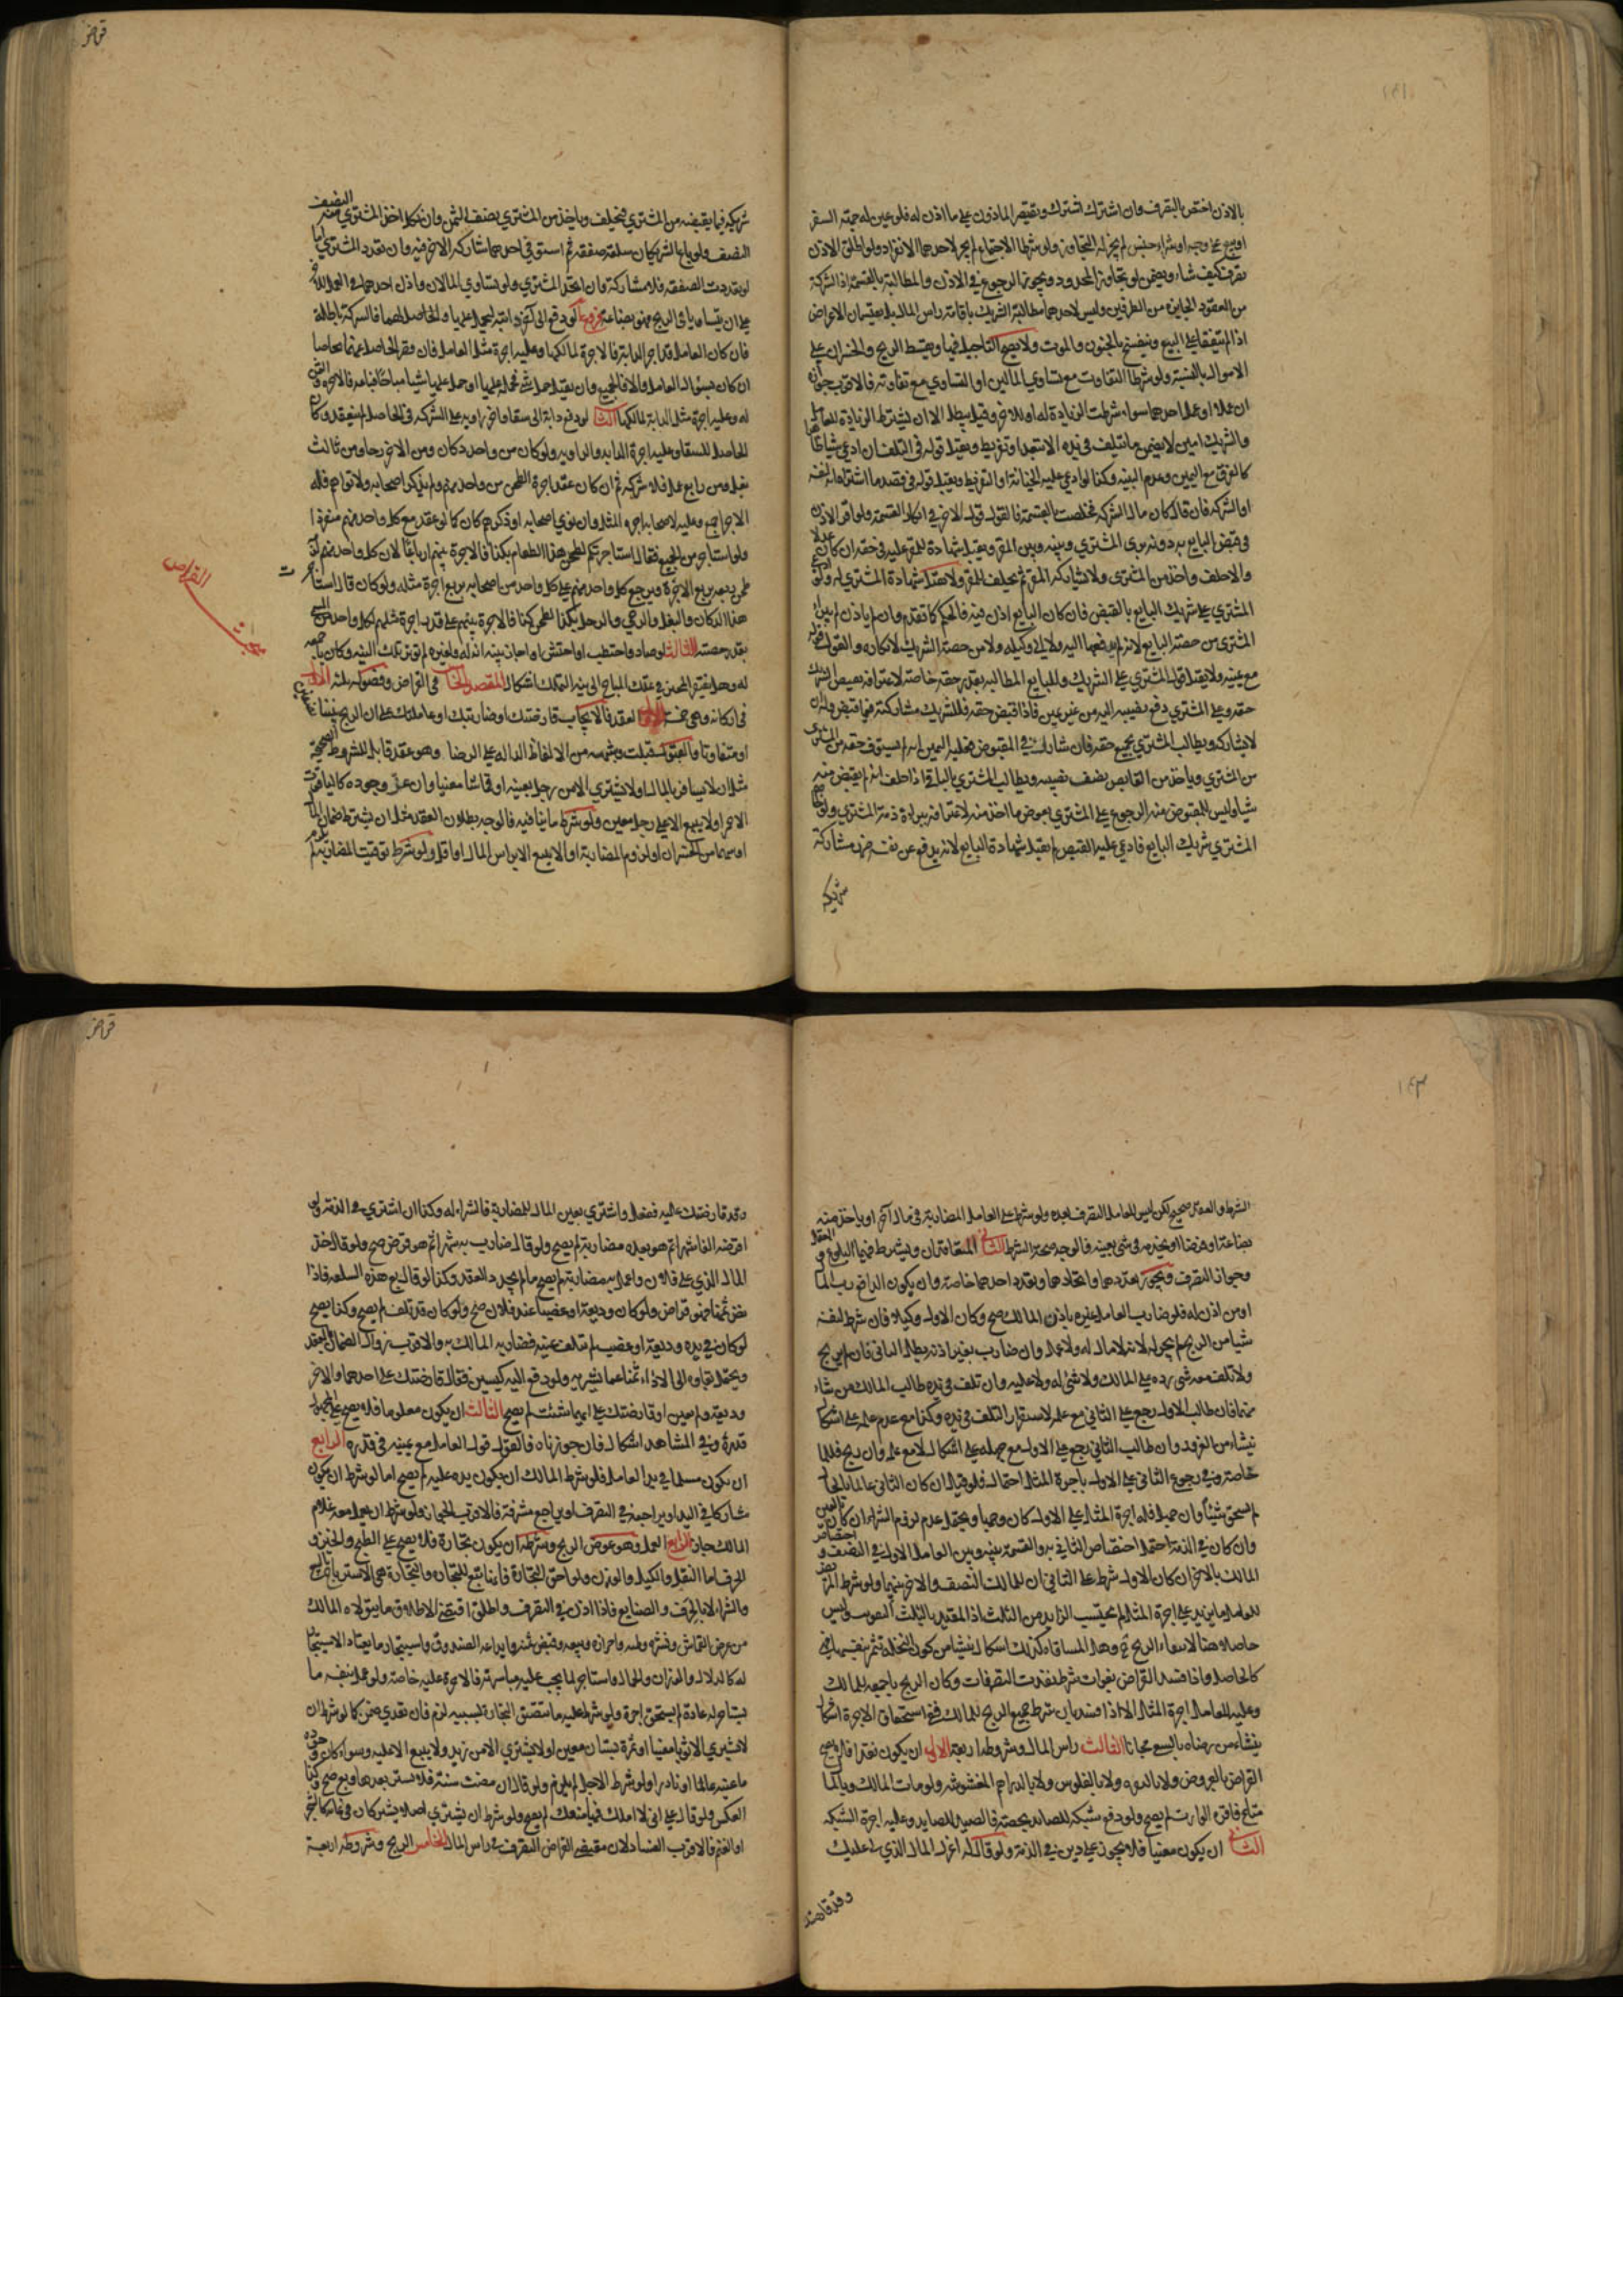 بالاذن اختص بالتصرف وان اشترك اشترك ويقتصر الماذون على ما اذن له فلو عين له جهة السفر
او بيع على وجه او شراء جنس لم يجز له التجاوز ولو شرطا الاجتماع لم يجز لاحدهما الانفراد ولو اطلق الاذن
تصرف كيف شاء ويضمن لو تجاوز المحدود ويجوز الرجوع في الاذن والمطالبة بالقسمة اذ الشركة
من العقود الجايزة من الطرفين وليس لاحدهما مطالبة الشريك باقامة راس المال بل يقتسمان الاعراض
اذا لم يتفقا على البيع وينفسخ بالجنون والموت ولا يصح التاجيل فيها ويقسط الربح والخسران على
الاموال بالنسبة ولو شرطا التفاوت مع تساوي المالين او التساوي مع تفاوته فالاقرب جوازه
ان عملا او عمل احدهما سواء شرطت الزيادة له او للاخر وقيل يبطل الا ان يشترط الزيادة للعامل
والشريك امين لا يضمن ما يتلف في يده الا بتعد او تفريط ويقبل قوله في التلف وان ادعى سببا ظاهرا
كالغرق مع اليمين وعدم البينة وكذا لو ادعى عليه الخيانة او التفريط ويقبل قوله في قصد ما اشتراه انه لنفسه
او الشركة فان قال كان مال الشركة فخلصت بالقسمة فالقول قول الاخر في انكار القسمة ولو اقر الاذن
في قبض البايع به دونه برئ المشتري وبينه وبين المقر ويقبل شهادة المقر عليه في حقه ان كان عدلا
والا حلف واخذ من المشتري ولا يشاركه المقر ثم يحلف المقر ولا يقبل شهادة المشتري له ولو ادعى
المشتري على شريك البايع بالقبض فان كان البايع اذن فيه فالحكم كما تقدم وان لم ياذن لم يبرأ
المشتري من حصة البايع لانه لم يدفعها اليه ولا الى وكيله ولا من حصة الشريك لانكاره والقول قوله
مع يمينه ولا يقبل قول المشتري على الشريك وللبايع المطالبة بقدر حقه خاصة لاعترافه بقبض الشريك
حقه وعلى المشتري دفع نصيبه اليه من غير يمين فاذا قبض حقه فللشريك مشاركته فيما قبض وله ان
لا يشاركه ويطالب المشتري بجميع حقه فان شاركه في المقبوض فعليه اليمين انه لم يستوف حقه من المشتري
من المشتري وياخذ من القابض نصف نصيبه ويطالب المشتري بالباقي اذا حلف انه لم يقبض منه
شيا وليس للمقبوض منه الرجوع على المشتري بعوض ما اخذ منه لاعترافه ببراءة ذمة المشتري ولو خاصم
المشتري شريك البايع فادعى عليه القبض لم تقبل شهادة البايع لانه يدفع عن نفسه ضرر مشاركة
شريكه
قراض
شريكه فيما يقبضه من المشتري فيحلف وياخذ من المشتري نصف الثمن وان نكل اخذ المشتري منه النصف
النصف ولو باع الشريكان سلعة صفقة ثم استوفى احدهما شاركه الاخر فيه وان تعدد المشتري اما
لو تعددت الصفقة فلا مشاركة وان اتحد المشتري ولو تساوى المالان واذن احدهما في العمل للاخر
على ان يتساويا في الربح فهو بضاعة فروع لو دفع الى اخر دابته ليحمل عليها والحاصل لهما فالشركة باطلة
فان كان العامل قد اجر الدابة فالاجرة لمالكها وعليه اجرة مثل العامل فان قصر الحاصل عنهما تحاصا
ان كان بسؤال العامل والا فالجميع وان تقبل حمل شئ فحمله عليها او حمل عليها شيئا مباحا فباعه فالاجرة والثمن
له وعليه اجرة مثل الدابة لمالكها الثاني لو دفع دابة الى سقا واخر راوية على الشركة في الحاصل لم ينعقد وكان
الحاصل للسقا وعليه اجرة الدابة والراوية ولو كان من واحد دكان ومن الاخر رحا ومن ثالث
بغل ومن رابع عمل فلا شركة ثم ان كان عقد اجرة الطحن من واحد منهم ولم يذكر اصحابه ولا نواهم فله
الاجر اجمع وعليه لاصحابه اجرة المثل وان نوى اصحابه او ذكرهم كان كما لو عقد مع كل واحد منهم منفردا
ولو استاجر من الجميع فقال استاجرتكم لطحن هذا الطعام بكذا فالاجرة بينهم ارباعا لان كل واحد منهم لزمه
طحن ربعه بربع الاجرة ويرجع كل واحد منهم على كل واحد من اصحابه بربع اجرة مثله ولو كان قال استاجرت
هذا الدكان والبغل والرحى والرجل بكذا لطحن كذا فالاجرة بينهم على قدر اجرة مثلهم لكل واحد من المسمى
بقدر حصته الثالث لو صاد او احتطب او احتش او احاز بنية انه له ولغيره لم تؤثر تلك النية وكان باجمعه
له وهل يفتقر المحيز في تملك المباح الى نية التملك اشكال المقصد الخامس في القراض وفصوله ثلثة الاول
في اركانه وهي خمسة الاول العقد فالايجاب قارضتك او ضاربتك او عاملتك على ان الربح بيننا
او متفاوتا والقبول قبلت وشبهه من الالفاظ الدالة على الرضا وهو عقد قابل للشروط الصحيحة
مثل ان لا يسافر بالمال او لا يشتري الا من رجل بعينه او قماشا معينا وان عز وجوده كالياقوت
الاحمر او لا يبيع الا على رجل معين ولو شرط ما ينافيه فالوجه بطلان العقد مثل ان يشترط ضمان المال
او سهما من الخسران او لزوم المضاربة او الا يبيع الا براس المال او اقل ولو شرط توقيت المضاربة لم يلزم
القراض
١٤٣
الشرط والعقد صحيح لكن ليس للعامل التصرف بعده ولو شرط على العامل المضاربة في مال اخر او ياخذ منه
بضاعة او قرضا او يخدمه في شئ بعينه فالوجه صحة الشرط الثاني المتعاقدان ويشترط فيهما البلوغ والعقل
وجواز التصرف ويجوز تعددهما واتحادهما وتعدد احدهما خاصة وان يكون الدافع رب المال
او من اذن له فلو ضارب العامل غيره باذن المالك صح وكان الاول وكيلا فان شرط لنفسه
شيا من الربح لم يجز له لانه لا مال له ولا عمل وان ضارب بغير اذنه بطل الثاني فان لم يربح
ولا تلف منه شئ رده على المالك ولا شئ له ولا عليه وان تلف في يده طالب المالك من شاء
منهما فان طالب الاول رجع على الثاني مع علمه لاستقرار التلف في يده وكذا مع عدم علمه على اشكال
ينشاء من الغرور وان طالب الثاني رجع على الاول مع جهله على اشكال لا مع علمه وان ربح فللمالك
خاصة وفي رجوع الثاني على الاول باجرة المثل احتمال ولو قيل ان كان الثاني عالما بالحال
لم يستحق شيئا وان جهل فله اجرة المثل على الاول كان وجها ويحتمل عدم لزوم الشراء ان كان بالعين
وان كان في الذمة احتمل اختصاص الثاني به والقسمة بينه وبين العامل الاول في النصف واختصاص
المالك بالاخر ان كان الاول شرط على الثاني ان للمالك النصف والاخر بينهما ولو شرط المريض
للعامل ما يزيد على اجرة المثل لم يحتسب الزايد من الثلث اذ المقيد بالثلث التفويت وليس
حاصلا هنا لانتفاء الربح ح وهل المساقاة كذلك اشكال ينشاء من كون النخلة تثمر بنفسها فهي
كالحاصل واذا فسد القراض بفوات شرط نفذت التصرفات وكان الربح باجمعه للمالك
وعليه للعامل اجرة المثل الا اذا فسد بان شرط جميع الربح للمالك ففي استحقاق الاجرة اشكال
ينشاء من رضاه بالسعي مجانا الثالث راس المال وشروطه اربعة الاول ان يكون نقدا فلا يصح
القراض بالعروض ولا بالنقرة ولا بالفلوس ولا بالدراهم المغشوشة ولو مات المالك وبالمال
متاع فاقره الوارث لم يصح ولو دفع شبكة للصائد بحصة فالصيد للصايد وعليه اجرة الشبكة
الثاني ان يكون معينا فلا يجوز على دين في الذمة ولو قال له اعزل المال الذي لي عليك
وقد قارضتك
قراض
وقد قارضتك عليه ففعل واشترى بعين المال للمضاربة فالشراء له وكذا ان اشترى في الذمة ولو
اقرضه الفا شهرا ثم هو بعده مضاربة لم يصح ولو قال ضارب به شهرا ثم هو قرض صح ولو قال خذ
المال الذي على فلان واعمل به مضاربة لم يصح ما لم يجدد العقد وكذا لو قال بع هذه السلعة فاذا
نض ثمنها فهو قراض ولو كان وديعة او غصبا عند فلان صح ولو كان قد تلف لم يصح وكذا يصح
لو كان في يده وديعة او غصب لم تتلف عينه فضاربه المالك به والاقرب زوال الضمان بالعقد
ويحتمل بقاؤه الى الاداء ثمنا عما يشتريه ولو دفع اليه كيسين فقال قارضتك على احدهما والاخر
وديعة ولم يعين او قارضتك على ايهما شئت لم يصح الثالث ان يكون معلوما فلا يصح على المجهول
قدره وفي المشاهد اشكال فان جوزناه فالقول قول العامل مع يمينه في قدره الرابع
ان يكون مسلما في يد العامل فلو شرط المالك ان يكون يده عليه لم يصح اما لو شرط ان يكون
مشاركا في اليد او يراجعه في التصرف او يراجع مشرفه فالاقرب الجواز ولو شرط ان يعمل معه غلام
المالك جاز الرابع العمل وهو عوض الربح وشرطه ان يكون تجارة فلا يصح على الطبخ والخبز و
الحرف اما النقل والكيل والوزن ولواحق التجارة فانها تتبع للتجارة والتجارة هي الاسترباح بالبيع
والشراء لا بالحرف والصنايع فاذا اذن في التصرف واطلق اقتضى الاطلاق ما يتولاه المالك
من عرض القماش ونشره وطيه واحرازه وبيعه وقبض ثمنه وايداعه الصندوق واستيجار ما يعتاد الاستيجار
له كالدلال والوزان والحمال ولو استاجر لما يجب عليه مباشرته فالاجرة عليه خاصة ولو عمل بنفسه ما
يستاجر له عادة لم يستحق اجرة ولو شرط عليه ما تضيق التجارة بسببه لزم فان تعدى ضمن كما لو شرط ان
لا يشتري الا ثوبا معينا او ثمرة بستان معين او لا يشتري الا من زيد ولا يبيع الا عليه وسواء كان وجود
ما عينه عاما او نادرا ولو شرط الاجل لم يلزم ولو قال ان مضت سنة فلا تشتر بعدها وبع صح وكذا
العكس ولو قال على اني لا املك فيها منعك لم يصح ولو شرط ان يشتري اصلا يشتركان في نمائه كالشجر
او الغنم فالاقرب الفساد لان مقتضى القراض التصرف في راس المال الخامس الربح وشروطه اربعة